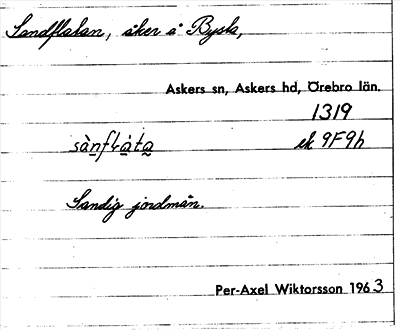 Sandflatan, åker å Bysta,
Askers sn, Askers hd, Örebro län.
1319
sànflàta ek 9F9h
Sandig jordmån.
Per-Axel Wiktorsson 1963